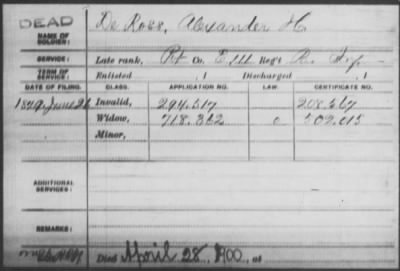 DEAD
De Ross, Alexander H.
NAME OF SOLDIER:
SERVICE: Late rank, Pt Co. E, 111 Reg't Pa. Inf.
TERM OF SERVICE: Enlisted , 1 Discharged , 1
DATE OF FILING. CLASS. APPLICATION NO. LAW. CERTIFICATE NO.
June Invalid, 294.517 208.567
Widow, 718.362 509.015
Minor,
ADDITIONAL SERVICES:
REMARKS:
Died April 28, 1900, at